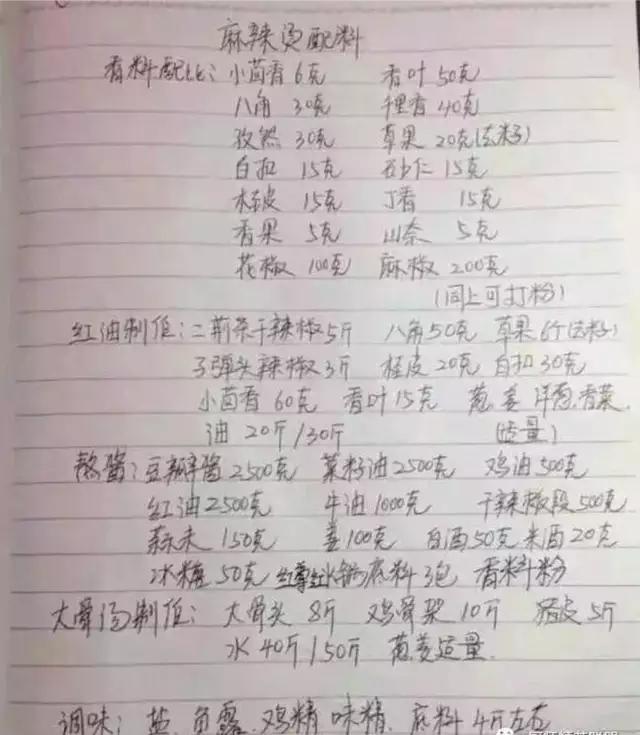 麻辣烫配料
香料配比：小茴香 6克 香叶 50克
八角 30克 千里香 40克
孜然 30克 草果 20克(去籽)
白扣 15克 砂仁 15克
桂皮 15克 丁香 15克
香果 5克 山奈 5克
花椒 100克 麻椒 200克
(同上可打粉)
红油制作：二荆条干辣椒5斤 八角50克 草果6个(去籽)
子弹头辣椒3斤 桂皮20克 白扣30克
小茴香 60克 香叶15克 葱.姜 洋葱.香菜.
油 20斤/30斤 (适量)
熬酱：豆瓣酱2500克 菜籽油2500克 鸡油500克
红油2500克 牛油1000克 干辣椒段500克
蒜末 150克 姜100克 白酒50克 米酒20克
冰糖 50克 底料3包 香料粉
大骨汤制作： 大骨头 8斤 鸡骨架 10斤 猪皮5斤
水 40斤/50斤 葱姜适量
调味：盐.鱼露.鸡精 味精. 底料 4斤左右